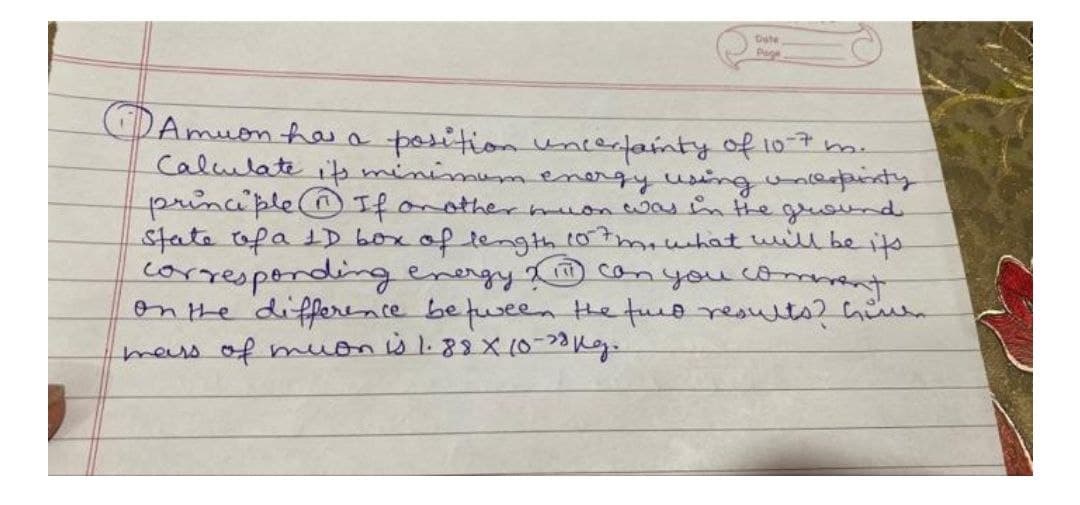 Date
Page
(i) A muon has a position uncertainty of 10⁻⁷ m.
Calculate its minimum energy using uncertainty
principle (ii) If another muon was in the ground
state of a 1D box of length 10⁻⁷m, what will be its
corresponding energy? (iii) can you comment
on the difference between the two results? Given
mass of muon is 1.88 X 10⁻²⁸ Kg.